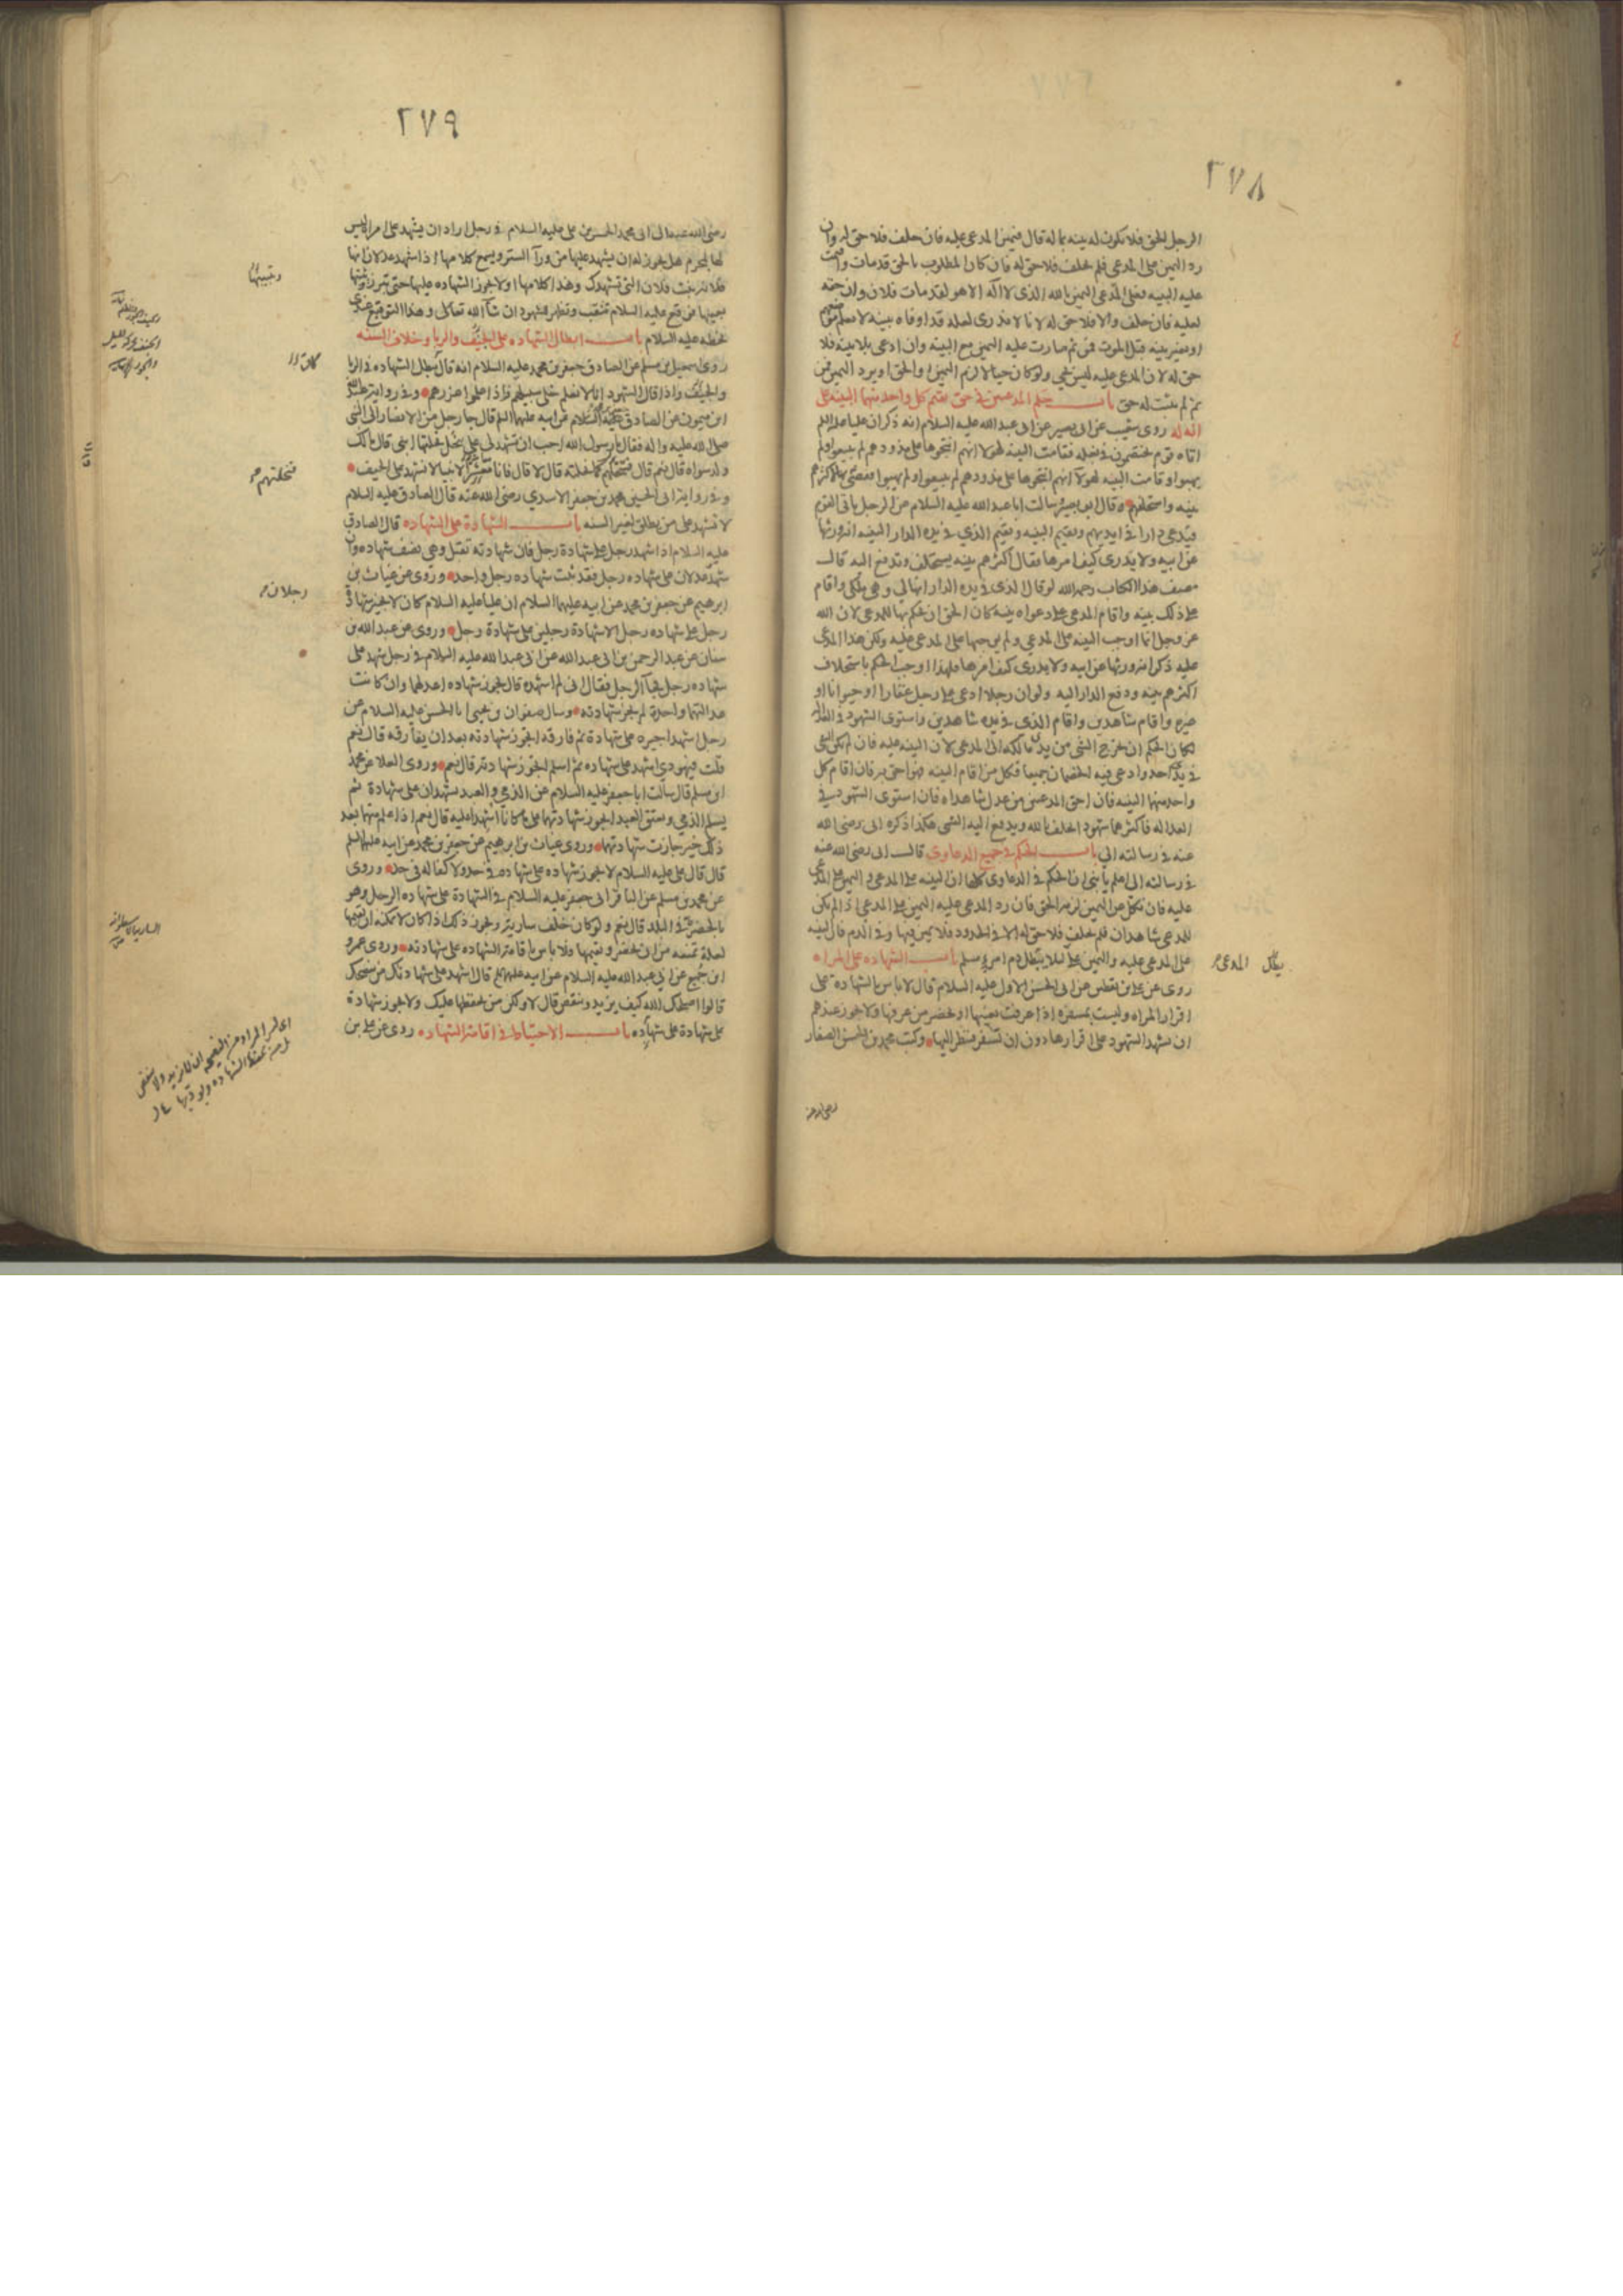 ٢٧٨
الرجل الحق فلا تكون له بينه بما له قال فيمين المدعى عليه فان حلف فلا حق له وان
رد اليمين على المدعى فلم يحلف فلا حق له فان كان المطلوب بالحق قد مات واقيمت
عليه البينه فعلى المدعى اليمين بالله الذى لا اله الا هو لقد مات فلان وان حقه
لعليه فان حلف والا فلا حق له لانا لا ندرى لعله قد اوفاه ببينه لا نعلم موضعها
او بغير بينه قبل الموت فمن ثم صارت عليه اليمين مع البينه وان ادعى بلا بينه فلا
حق له لان المدعى عليه ليس بحى ولو كان حيا لالزم اليمين او الحق او يرد اليمين فمن
ثم لم يثبت له حق باب حكم المدعيين فى حق يقيم كل واحد منهما البينه على
انه له روى شعيب عن ابى بصير عن ابى عبد الله عليه السلام انه ذكر ان عليا عليه السلم
اتاه قوم يختصمون فى بغله فقامت البينه لهولا انهم انتجوها على مذودهم لم يبيعوا ولم
يهبوا وقامت البينه لهولآ انهم انتجوها على مذودهم لم يبيعوا ولم يهبوا فقضى بها لاكثرهم
بينه واستحلفهم وقال ابو بصير سالت ابا عبد الله عليه السلام عن الرجل ياتى القوم
فيدعى دارا فى ايديهم ويقيم البينه ويقيم الذي فى يده الدار البينه انه ورثها
عن ابيه ولا يدرى كيف امرها فقال اكثرهم بينه يستحلف وتدفع اليه قال
مصنف هذا الكتاب رحمه الله لو قال الذى فى يده الدار انها لي وهى ملكى واقام
على ذلك بينه واقام المدعى على دعواه بينه كان الحق ان يحكم بها للمدعى لان الله
عز وجل انما اوجب البينه على المدعي ولم يوجبها على المدعى عليه ولكن هذا المدعى
عليه ذكر انه ورثها عن ابيه ولا يدرى كيف امرها فلهذا اوجب الحكم باستحلاف
اكثرهم بينه ودفع الدار اليه ولو ان رجلا ادعى على رجل عقارا او حيوانا او
غيره واقام شاهدين واقام الذى فى يده شاهدين واستوى الشهود فى العداله
لكان الحكم ان يخرج الشى من يد مالكه الى المدعى لان البينه عليه فان لم يكن الشى
فى يد احد وادعى فيه الخصمان جميعا فكل من اقام البينه فهو احق به فان اقام كل
واحد منهما البينه فان احق المدعيين من عدل شاهداه فان استوى الشهود فى
العداله فاكثرهما شهودا يحلف بالله ويدفع اليه الشى هكذا ذكره ابى رضى الله
عنه فى رسالته الي باب الحكم فى جميع الدعاوى قال ابى رضى الله عنه
فى رسالته الى اعلم يا بنى ان الحكم فى الدعاوى كلها ان البينه على المدعى واليمين على المدعى
عليه فان نكل عن اليمين لزمه الحق فان رد المدعى عليه اليمين على المدعى اذا لم يكن
للمدعى شاهدان فلم يحلف فلا حق له الا فى الحدود فلا يمين فيها وفى الدم فان البينه
على المدعى عليه واليمين على لئلا يبطل دم امرء مسلم باب الشهاده على المراه
يبطل المدعى
روى عن على بن يقطين عن ابى الحسن الاول عليه السلام قال لا باس بالشهاده على
اقرار المراه وليست بمسفره اذا عرفت بعينها او يحضر من عرفها ولا يجوز عندهم
ان يشهد الشهود على اقرارها دون ان تسفر فينظر اليها وكتب محمد بن الحسن الصفار
رضى الله عنه
٢٧٩
رضى الله عنه الى ابى محمد الحسن بن على عليه السلام فى رجل اراد ان يشهد على امراه ليس
لها بمحرم هل يجوز له ان يشهد عليها من ورآ الستر ويسمع كلامها اذا شهد عدلان انها
فلانه بنت فلان التى تشهدك وهذا كلامها او لا يجوز الشهاده عليها حتى تبرز
بعينها فوقع عليه السلام تتنقب وتظهر للشهود ان شآ الله تعالى وهذا التوقيع عندى
بخطه عليه السلام باب ابطال الشهاده على الجنف والربا وخلاف السنه
روى اسمعيل بن مسلم عن الصادق جعفر بن محمد عليه السلام انه قال تبطل الشهاده فى الربا
والجنف واذا قال الشهود انا لا نعلم خلى سبيلهم واذا علموا عزرهم وفى روايه عبد الله
ابن ميمون عن الصادق عليه السلام عن ابيه عليهما السلم قال جا رجل من الانصار الى النبى
صلى الله عليه واله فقال يا رسول الله احب ان تشهد لى على نحل نحلتها ابنى قال مالك
ولد سواه قال نعم قال فنحلتهم كما نحلته قال لا قال فانا معشر الانبيا لا نشهد على الحيف
وفى روايه ابى الحسين محمد بن جعفر الاسدي رضى الله عنه قال الصادق عليه السلام
لا تشهد على من يطلق لغير السنه باب الشهادة على الشهاده قال الصادق
عليه السلام اذا شهد رجل على شهادة رجل فان شهادته تقبل وهى نصف شهاده وان
شهد عدلان على شهاده رجل فقد ثبت شهاده رجل واحد وروى عن غياث بن
ابرهيم عن جعفر بن محمد عن ابيه عليهما السلام ان عليا عليه السلام كان لا يجيز شهادة
رجل على شهاده رجل الا شهادة رجلين على شهادة رجل وروى عن عبد الله بن
سنان عن عبد الرحمن بن ابى عبد الله عن ابى عبد الله عليه السلام فى رجل شهد على
شهاده رجل فجآ الرجل فقال انى لم اشهده قال يجوز شهاده اعدلهما وان كانت
عدالتهما واحدة لم يجز شهادته وسال صفوان بن يحيى ابا الحسن عليه السلام عن
رجل اشهد اجيره على شهادة ثم فارقه اتجوز شهادته بعد ان يفارقه قال نعم
قلت فيهودي اشهد على شهاده ثم اسلم اتجوز شهادته قال نعم وروى العلا عن محمد
ابن مسلم قال سالت ابا جعفر عليه السلام عن الذمي والعبد يشهدان على شهادة ثم
يسلم الذمي ويعتق العبد اتجوز شهادتهما على ما كانا اشهدا عليه قال نعم اذا علم منهما بعد
ذلك خير جازت شهادتهما وروى غياث بن ابرهيم عن جعفر بن محمد عن ابيه عليهما السلم
قال قال على عليه السلام لا تجوز شهاده على شهاده فى حد ولا كفاله فى حد وروى
عن محمد بن مسلم عن الباقر ابى جعفر عليه السلام فى الشهادة على شهاده الرجل وهو
بالحضرة فى البلد قال نعم ولو كان خلف ساريه ويجوز ذلك اذا كان لا يمكنه ان يقيمها
لعلة تمنعه من ان يحضر ويقيمها ولا باس باقامة الشهاده على شهادته وروى عمرو
ابن جميع عن ابي عبد الله عليه السلام عن ابيه عليهم السلم قال اشهد على شهادتك من ينصحك
قالوا اصلحك الله كيف يزيد وينقص قال لا ولكن من يحفظها عليك ولا يجوز شهادة
على شهادة على شهاده باب الاحتياط فى اقامة الشهاده روى عن على بن
فنحلتهم
رجلان